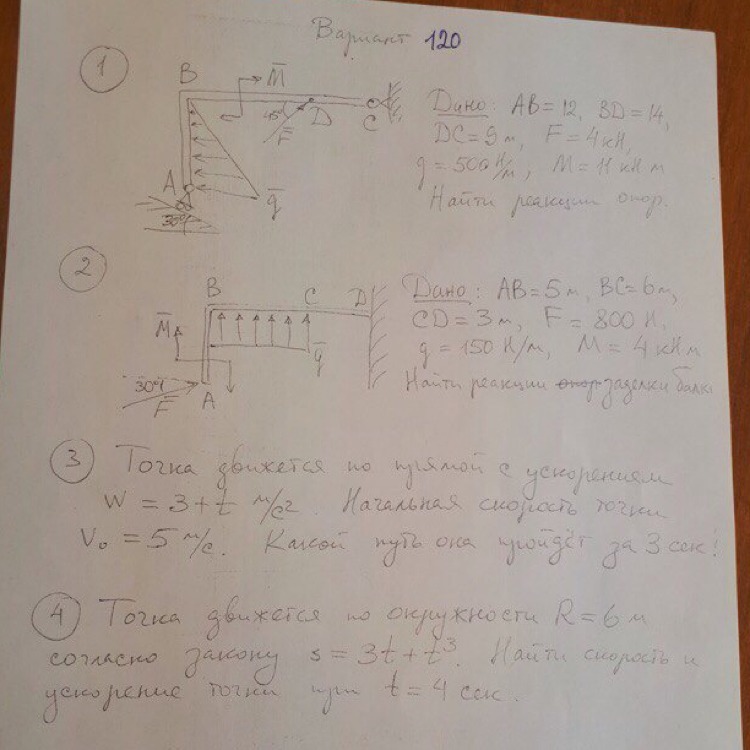 Вариант 120
1
B
M̅
45°
F̅
D
C
A
q̅
30°
Дано: AB=12, BD=14,
DC=9 м, F=4 кН,
q=500 Н/м, M=11 кН м
Найти реакции опор.
2
B
C
D
M̅
q̅
30°
F̅
A
Дано: AB=5 м, BC=6 м,
CD=3 м, F=800 Н,
q=150 Н/м, M=4 кН м
Найти реакции опор заделки балки
3 Точка движется по прямой с ускорением
W=3+t м/с². Начальная скорость точки
V₀=5 м/с. Какой путь она пройдёт за 3 сек!
4 Точка движется по окружности R=6 м
согласно закону s=3t+t³. Найти скорость и
ускорение точки при t=4 сек.